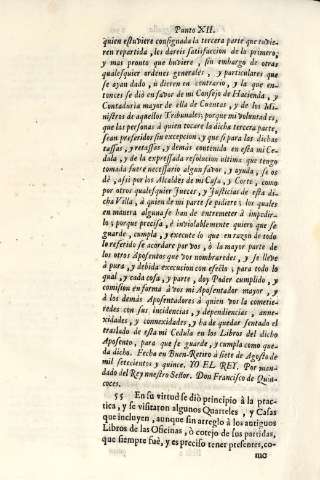 Punto XII.
quien estuviere consignada la tercera parte que tuvie-
ren repartida, los dareis satisfaccion de lo primero,
y mas pronto que huviere, sin embargo de otras
qualesquier ordenes generales, y particulares que
se ayan dado, ù dieren en contrario, y la que en-
tonces se diò en favor de mi Consejo de Hazienda, y
Contaduria mayor de ella de Cuentas, y de los Mi-
nistros de aquellos Tribunales; porque mi voluntad es,
que las personas à quien tocare la dicha tercera parte,
sean preferidos sin excepcion, y que si para las dichas
tassas, y retassas, y demàs contenido en esta mi Ce-
dula, y de la expressada resolucion ultima que tengo
tomada fuere necessario algun favor, y ayuda, se os
dè, assi por los Alcaldes de mi Casa, y Corte, como
por otros qualesquier Jueces, y Justicias de esta di-
cha Villa, à quien de mi parte se pidiere; los quales
en manera alguna se han de entremeter à impedir-
lo; porque precisa, è inviolablemente quiero que se
guarde, cumpla, y execute lo que en razon de todo
lo referido se acordare por vos, ò la mayor parte de
los otros Aposentos que vos nombraredes, y se lleve
à pura, y debida execucion con efecto; para todo lo
qual, y cada cosa, y parte, doy Poder cumplido, y
comision en forma à vos mi Aposentador mayor, y
à los demàs Aposentadores à quien vos la cometie-
redes con sus incidencias, y dependiencias, anne-
xidades, y connexidades, y ha de quedar sentado el
traslado de esta mi Cedula en los Libros del dicho
Aposento, para que se guarde, y cumpla como que-
da dicho. Fecha en Buen-Retiro à siete de Agosto de
mil setecientos y quince. YO EL REY. Por man-
dado del Rey nuestro Señor. Don Francisco de Quin-
coces.
55 En su virtud se diò principio à la prac-
tica, y se visitaron algunos Quarteles, y Casas
que incluyen, aunque sin arreglo à los antiguos
Libros de las Oficinas, ò cotejo de sus partidas,
que siempre fuè, y es preciso tener presentes, co-
mo